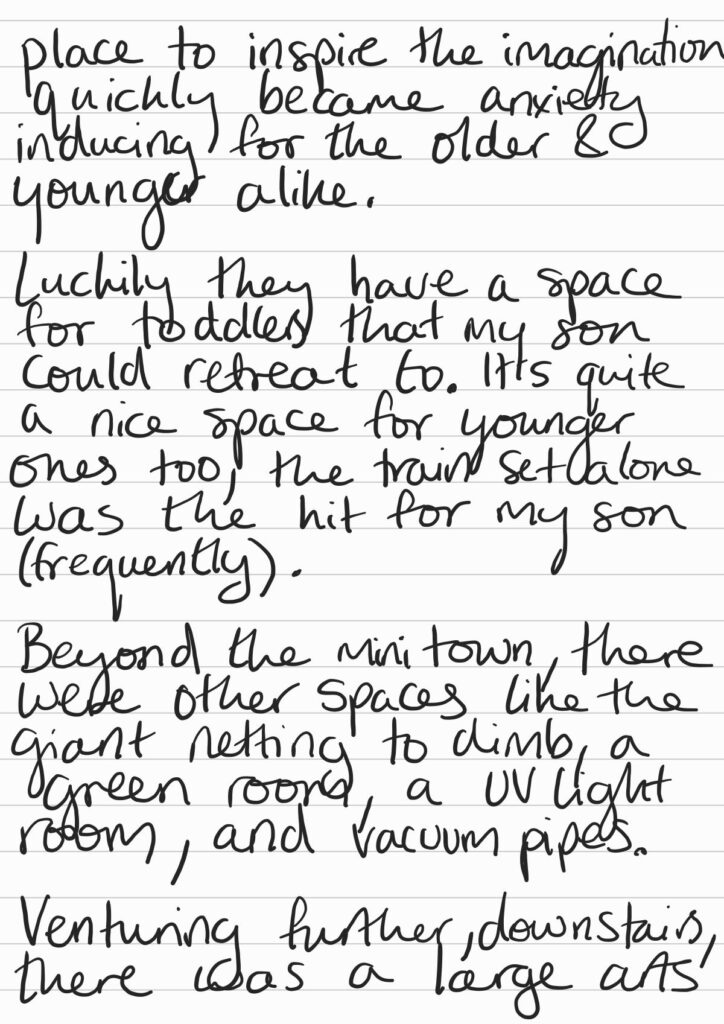 place to inspire the imagination
quickly became anxiety
inducing for the older &
younger alike.
Luckily they have a space
for toddlers that my son
could retreat to. It's quite
a nice space for younger
ones too, the train set alone
was the hit for my son
(frequently).
Beyond the mini town, there
were other spaces like the
giant netting to climb, a
green room, a UV light
room, and vacuum pipes.
Venturing further, downstairs,
there was a large arts